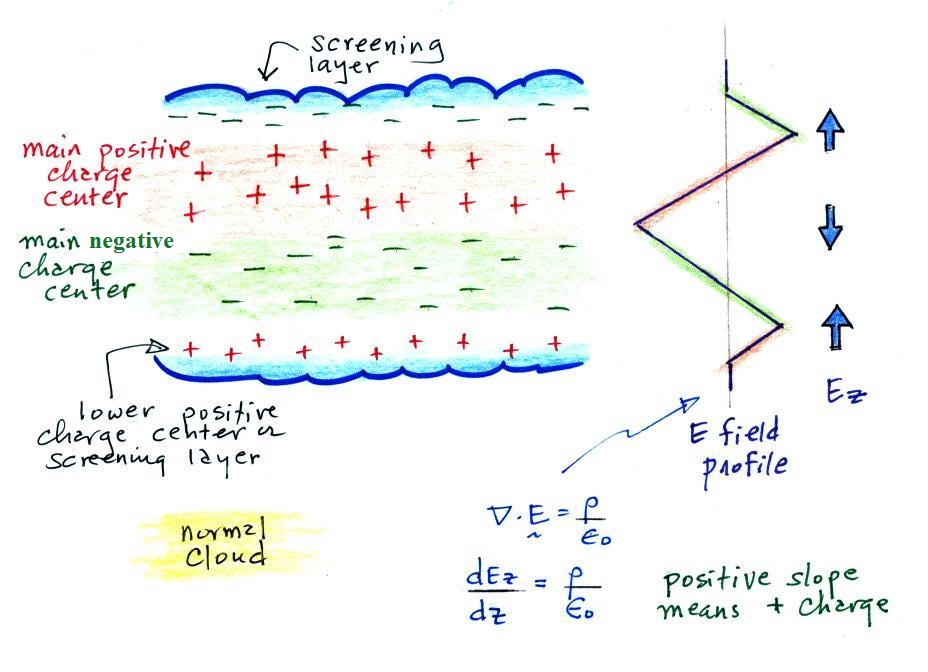 screening
layer
main positive
charge
center
main negative
charge
center
lower positive
charge center or
screening layer
normal
cloud
E field
profile
Ez
∇·E = ρ/ε0
dEz/dz = ρ/ε0
positive slope
means + charge